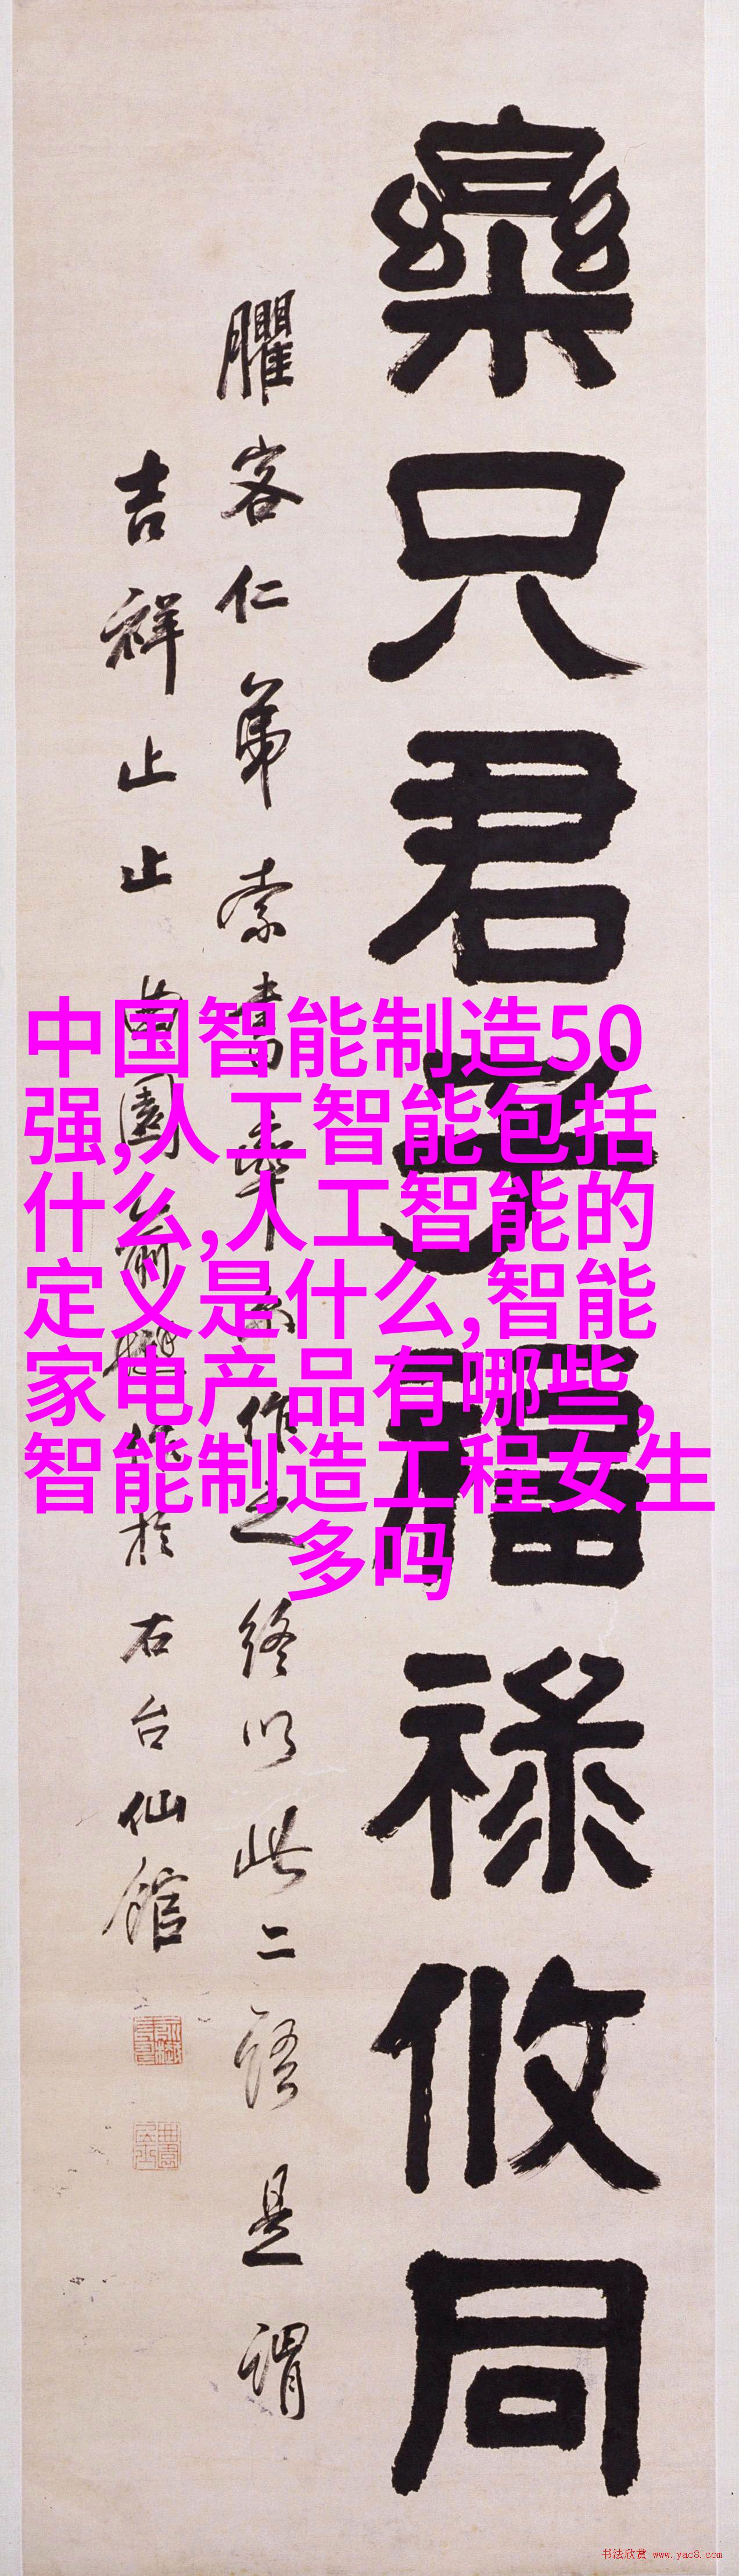 樂只君子福祿攸同
臞客仁弟索書率作之終以此二語是謂
吉祥止止曲園俞樾於右台仙館
中国智能制造50
强,人工智能包括
什么,人工智能的
定义是什么,智能
家电产品有哪些,
智能制造工程女生
多吗
书法欣赏 www.yac8.com